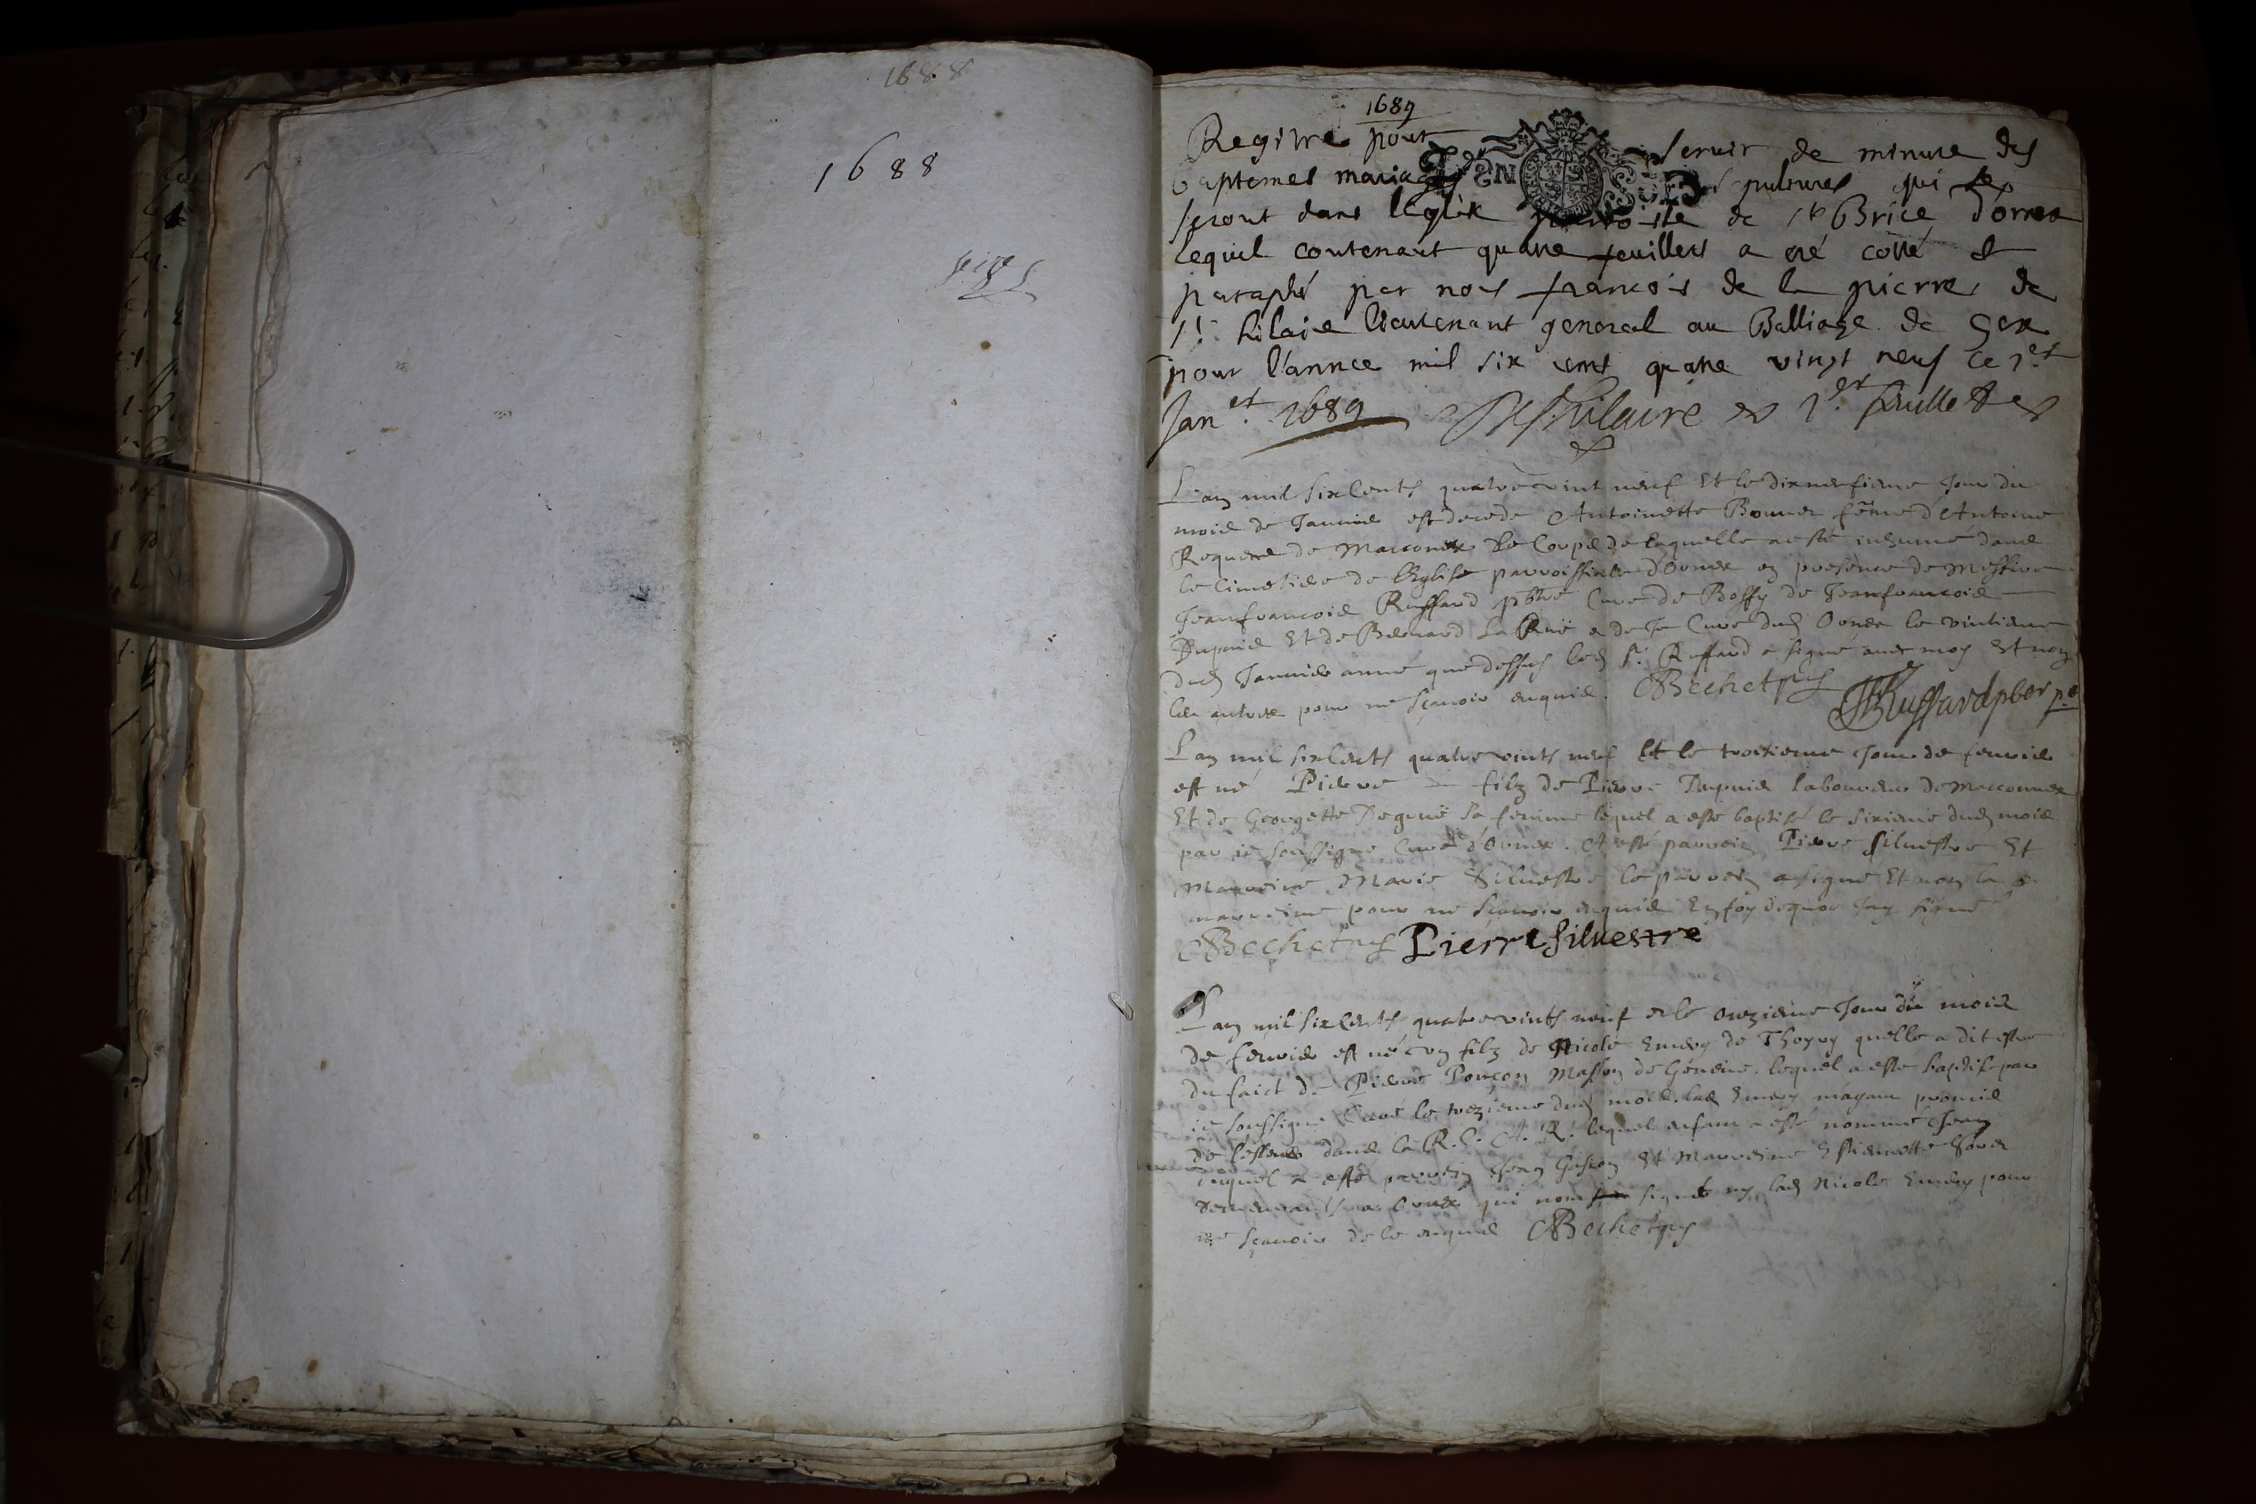 1688
1688
1689
Registre pour servir de minute des
baptemes mariages sepultures qui se
feront dans leglise parroisse de St Brice dornex
lequel contenant quatre feuillets a eté cotté et
paraphé par nous francois de la pierre de
St hilaire lieutenant general au Balliage de Gex
pour l'annee mil six cent quatre vingt neuf ce 1er
Janer 1689 DeSthilaire 1er feuillet
L'an mil six Cents quatre vint neuf Et le dixneufieme Jour du
mois de Janvier est decede Antoinette Bonnet feme d'Antoine
Requere de Macconex Le Corps de laquelle a esté inhumé dans
le Cimetiere de l'Eglise parroissiale d'Ornex en presence de Messire
Jeanfrancois Ruffard pbre Curé de Bossy de Jeanfrancois
Dupuis Et de Bernard La Ruë et de Je Curé dud Ornex le vintieme
dud Janvier année que dessus led Sr Ruffard a signé avec moy Et non
les autres pour ne sçavoir enquis. Bechet
JF Ruffard pber
L'an mil six Cents quatre vints neuf Et le troisieme Jour de fevrier
est né Pierre filz de Pierre Dupuis laboureur de Macconnex
Et de Georgette Deguë sa femme lequel a esté baptisé le sixieme dud mois
par je soussigné Curé d'Ornex. A esté parrein Pierre Silvestre Et
Marreine Marie Silvestre le parrein a signé Et non la
marreine pour ne sçavoir enquise En foy dequoi Jay signé
Bechet Pierre Silvestre
L'an mil six Cents quatre vints neuf et le onzieme Jour du mois
de fevrier est né un filz de Nicole Emery de Thoyry quelle a dit estre
du faict de Pierre Ponçon Masson de Géneve. lequel a esté baptisé par
je soussigné Curé le trezieme dud mois. lad Emery mayant promis
de leslever dans la R. C. A. R. lequel enfant a esté nommé Jean
duquel a esté parrein Jean Et Marreine
demeurants a Ornex qui nont signé ny lad Nicole Emery pour
ne sçavoir de ce enquis Bechet